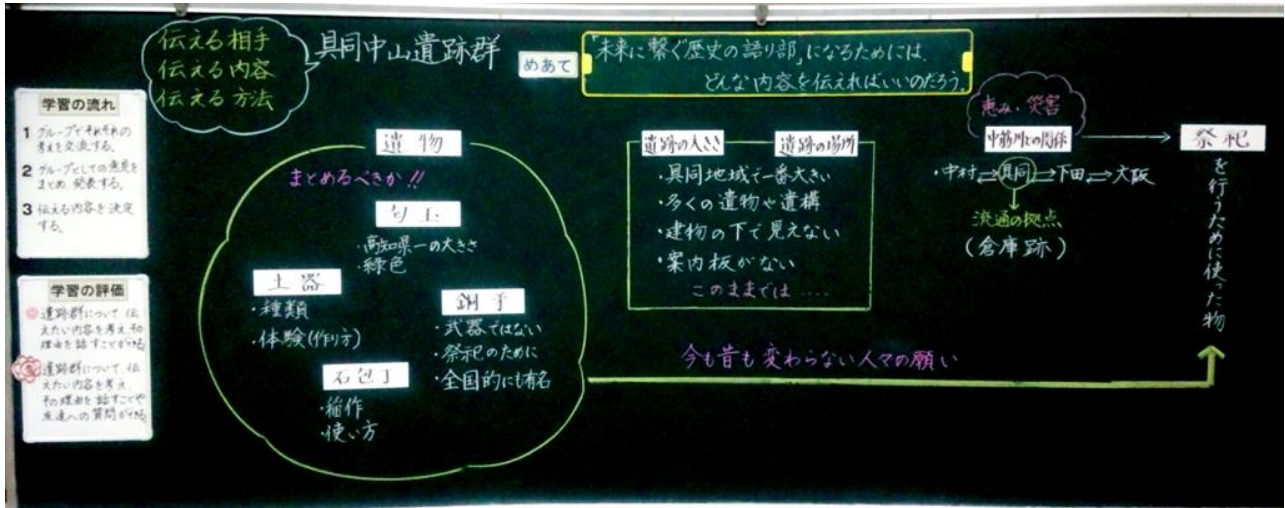 伝える相手
伝える内容
伝える方法
具同中山遺跡群
めあて
「未来に繋ぐ歴史の語り部」になるためには、
どんな内容を伝えればいいのだろう。
学習の流れ
1 グループでそれぞれの
考えを交流する。
2 グループとしての意見を
まとめ、発表する。
3 伝える内容を決定
する。
学習の評価
◎遺跡群について、伝
えたい内容を考え、その
理由を話すことができる。
遺跡群について、伝
えたい内容を考え、
その理由を話すことや
友達への質問ができる。
遺物
まとめるべきか!!
勾玉
・高知県一の大きさ
・緑色
土器
・種類
・体験(作り方)
銅矛
・武器ではない
・祭祀のために
・全国的にも有名
石包丁
・稲作
・使い方
遺跡の大きさ
遺跡の場所
・具同地域で一番大きい
・多くの遺物や遺構
・建物の下で見えない
・案内板がない
このままでは……
恵み・災害
中筋川との関係
・中村⇄具同⇄下田⇄大阪
流通の拠点
(倉庫跡)
祭祀
を行うために使った物
今も昔も変わらない人々の願い